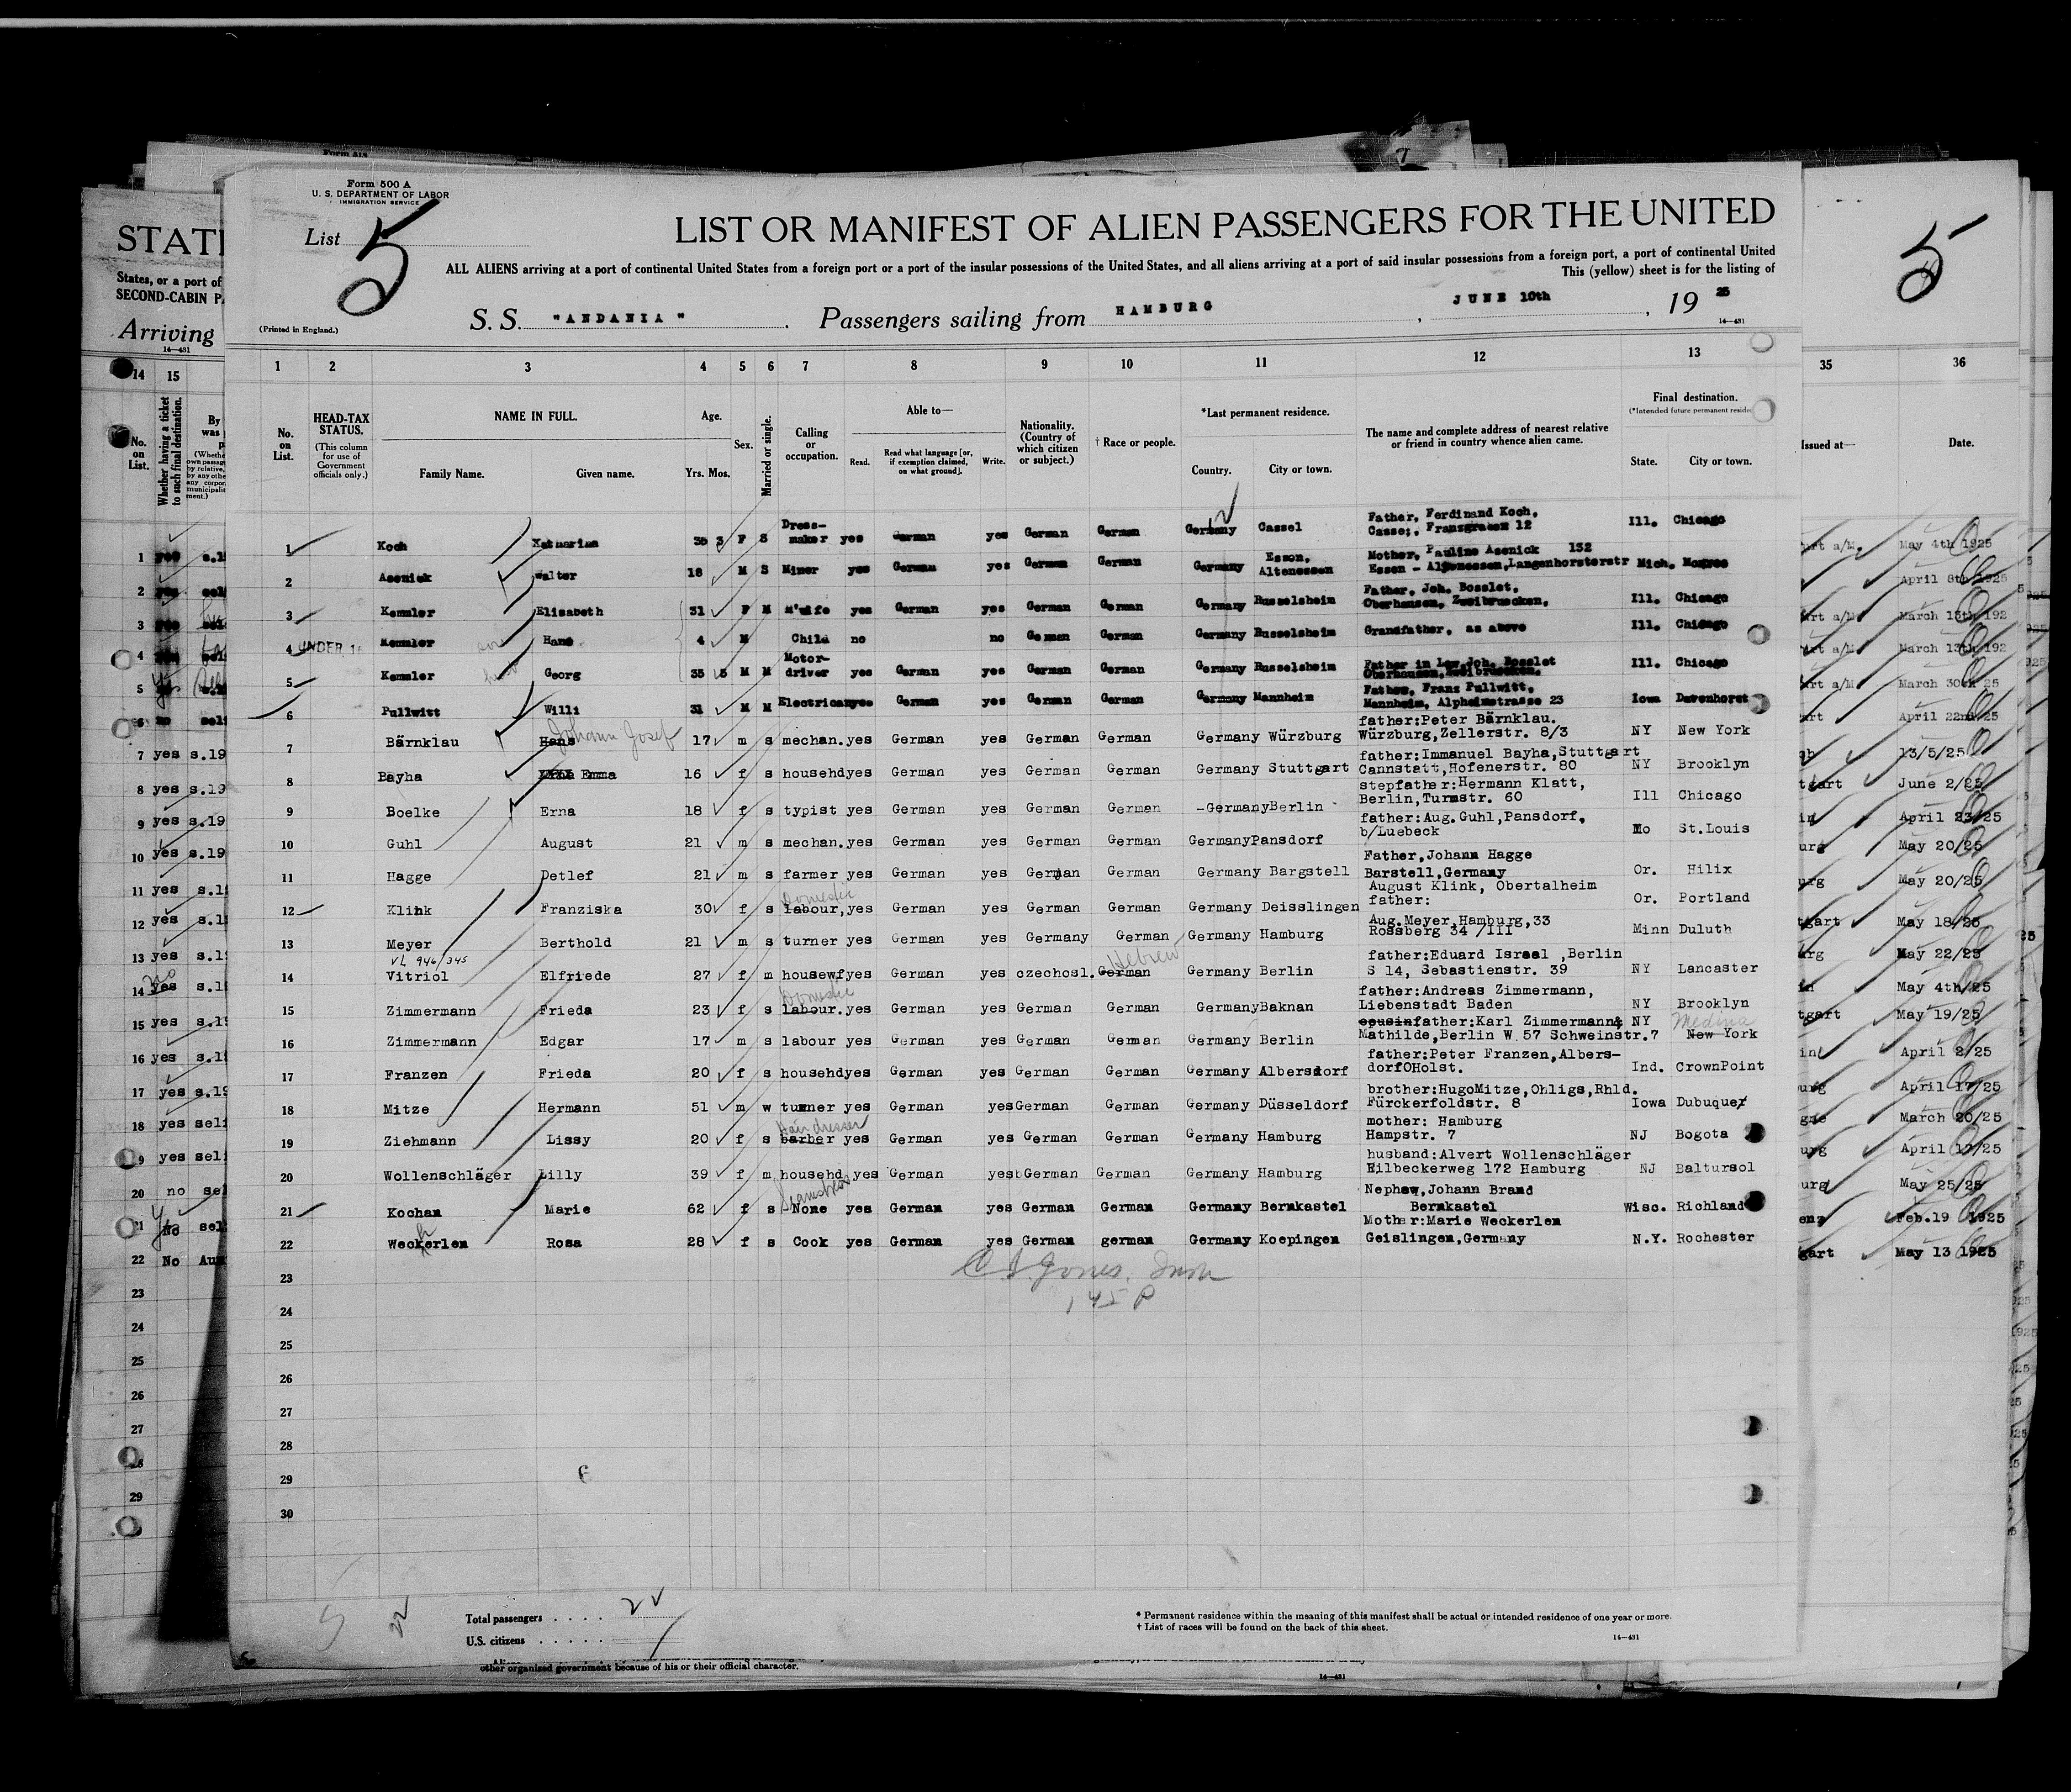 Form 500 A
U. S. DEPARTMENT OF LABOR
IMMIGRATION SERVICE
List 5
LIST OR MANIFEST OF ALIEN PASSENGERS FOR THE UNITED
ALL ALIENS arriving at a port of continental United States from a foreign port or a port of the insular possessions of the United States, and all aliens arriving at a port of said insular possessions from a foreign port, a port of continental United
This (yellow) sheet is for the listing of
(Printed in England.)
S. S. "ANDANIA". Passengers sailing from HAMBURG, JUNE 10th, 19 25
14—431
STATE
States, or a port of
SECOND-CABIN PA
Arriving
14—431
5
1 2 3 4 5 6 7 8 9 10 11 12 13
14 15 35 36
No. on List.
HEAD-TAX STATUS.
(This column for use of Government officials only.)
NAME IN FULL.
Family Name. Given name.
Age.
Yrs. Mos.
Sex.
Married or single.
Calling or occupation.
Able to—
Read. Read what language [or, if exemption claimed, on what ground]. Write.
Nationality. (Country of which citizen or subject.)
† Race or people.
*Last permanent residence.
Country. City or town.
The name and complete address of nearest relative or friend in country whence alien came.
Final destination.
(*Intended future permanent reside
State. City or town.
No. on List.
Whether having a ticket to such final destination.
Issued at— Date.
1 Koch Katharina 35 3 F S Dress-maker yes German yes German German Germany Cassel Father, Ferdinand Koch, Casse;, Franzgraben 12 Ill. Chicago May 4th 1925
2 Asenick Walter 18 M S Miner yes German yes German German Germany Essen, Altenessen Mother, Pauline Asenick 132 Essen - Altenessen, Langenhorsterstr Mich. Monroe April 8th 1925
3 Kemmler Elisabeth 31 F M M'wife yes German yes German German Germany Russelsheim Father, Joh. Bosslet, Oberhausen, Zweibruecken, Ill. Chicago March 13th 192
4 UNDER 16 Kemmler Hans 4 M Child no no German German Germany Russelsheim Grandfather, as above Ill. Chicago March 13th 192
5 Kemmler Georg 35 5 M M Motor-driver yes German yes German German Germany Russelsheim Father in Law, Joh. Bosslet Oberhausen, Zweibruecken. Ill. Chicago March 30th 25
6 Pullwitt Willi 31 M M Electrician yes German yes German German Germany Mannheim Father, Franz Pullwitt, Mannheim, Alpheimstrasse 23 Iowa Davenhorst April 22nd 25
7 Bärnklau Hans Johann Josef 17 m s mechan. yes German yes German German Germany Würzburg father:Peter Bärnklau. Würzburg,Zellerstr. 8/3 NY New York 13/5/25
8 Bayha Emma 16 f s househd yes German yes German German Germany Stuttgart father:Immanuel Bayha,Stuttgart Cannstatt,Hofenerstr. 80 NY Brooklyn June 2/25
9 Boelke Erna 18 f s typist yes German yes German German -Germany Berlin stepfather:Hermann Klatt, Berlin,Turmstr. 60 Ill Chicago April 23/25
10 Guhl August 21 m s mechan. yes German yes German German Germany Pansdorf father:Aug. Guhl,Pansdorf, b/Luebeck Mo St.Louis May 20/25
11 Hagge Detlef 21 m s farmer yes German yes German German Germany Bargstell Father,Johann Hagge Barstell,Germany Or. Hilix May 20/25
12 Klink Franziska 30 f s labour, Domestic yes German yes German German Germany Deisslingen August Klink, Obertalheim father: Or. Portland May 18/25
13 Meyer Berthold 21 m s turner yes German yes Germany German Germany Hamburg Aug.Meyer,Hamburg,33 Rossberg 34 /III Minn Duluth May 22/25
VL 946/345
14 Vitriol Elfriede 27 f m housewf yes German yes czechosl. German Hebrew Germany Berlin father:Eduard Israel ,Berlin S 14, Sebastienstr. 39 NY Lancaster May 4th/25
15 Zimmermann Frieda 23 f s labour. Domestic yes German yes German German Germany Baknan father:Andreas Zimmermann, Liebenstadt Baden NY Brooklyn May 19/25
16 Zimmermann Edgar 17 m s labour yes German yes German German Germany Berlin cousin father:Karl Zimmermann& Mathilde,Berlin W 57 Schweinstr.7 NY New York Medina April 2/25
17 Franzen Frieda 20 f s househd yes German yes German German Germany Albersdorf father:Peter Franzen,Albers-dorfOHolst. Ind. CrownPoint April 17/25
18 Mitze Hermann 51 m w turner yes German yes German German Germany Düsseldorf brother:HugoMitze,Ohligs,Rhld. Fürckerfoldstr. 8 Iowa Dubuque March 20/25
19 Ziehmann Lissy 20 f s barber Hairdresser yes German yes German German Germany Hamburg mother: Hamburg Hampstr. 7 NJ Bogota April 17/25
20 Wollenschläger Lilly 39 f m househd. yes German yes German German Germany Hamburg husband:Alvert Wollenschläger Eilbeckerweg 172 Hamburg NJ Baltursol May 25/25
21 Kochan Marie 62 f s None Seamstress yes German yes German German Germany Bernkastel Nephew,Johann Brand Bernkastel Wisc. Richland Feb.19 1925
22 Weckerlen Rosa 28 f s Cook yes German yes German german Germany Koepingen Mother:Marie Weckerlen Geislingen,Germany N.Y. Rochester May 13 1925
23
24
25
26
27
28
29
30
145 P
Total passengers . . . . 22
U.S. citizens . . . . .
* Permanent residence within the meaning of this manifest shall be actual or intended residence of one year or more.
† List of races will be found on the back of this sheet.
14—431
other organized government because of his or their official character.
14—431